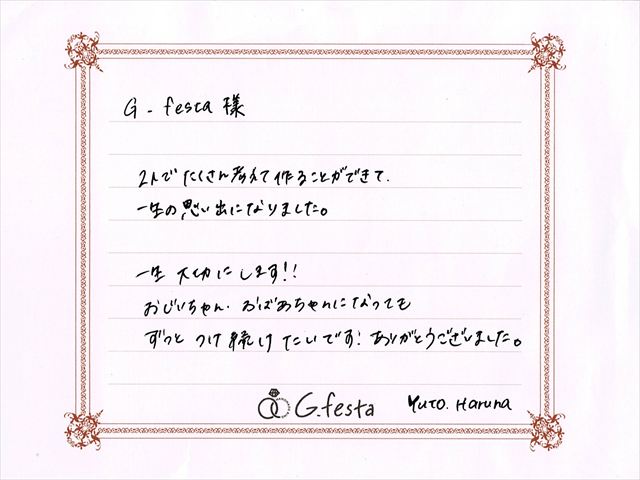 G - festa 様
2人でたくさん考えて作ることができて、
一生の思い出になりました。
一生大切にします!!
おじいちゃん、おばあちゃんになっても
ずっとつけ続けたいです! ありがとうございました。
G.festa
Yuto. Haruna